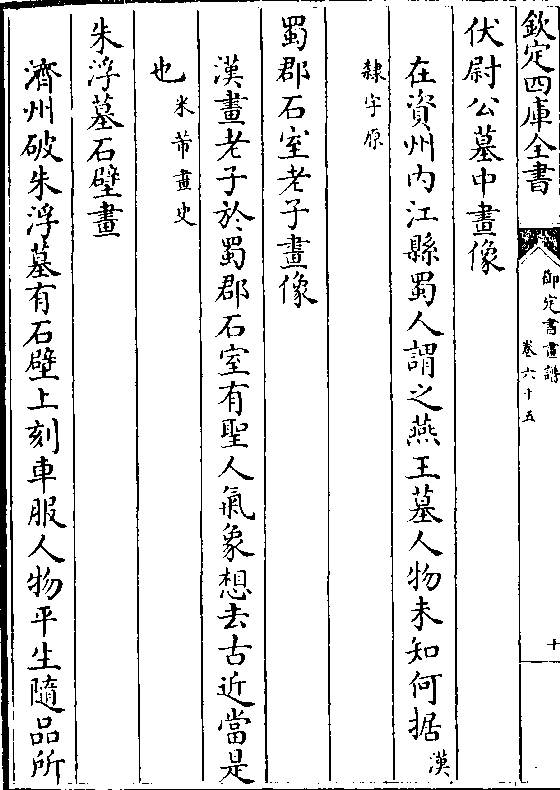 欽定四庫全書
御定書畫譜
卷六十五
十
伏尉公墓中畫像
在資州内江縣蜀人謂之燕王墓人物未知何据漢
隸字原
蜀郡石室老子畫像
漢畫老子於蜀郡石室有聖人氣象想去古近當是
也米芾畫史
朱浮墓石壁畫
濟州破朱浮墓有石壁上刻車服人物平生隨品所